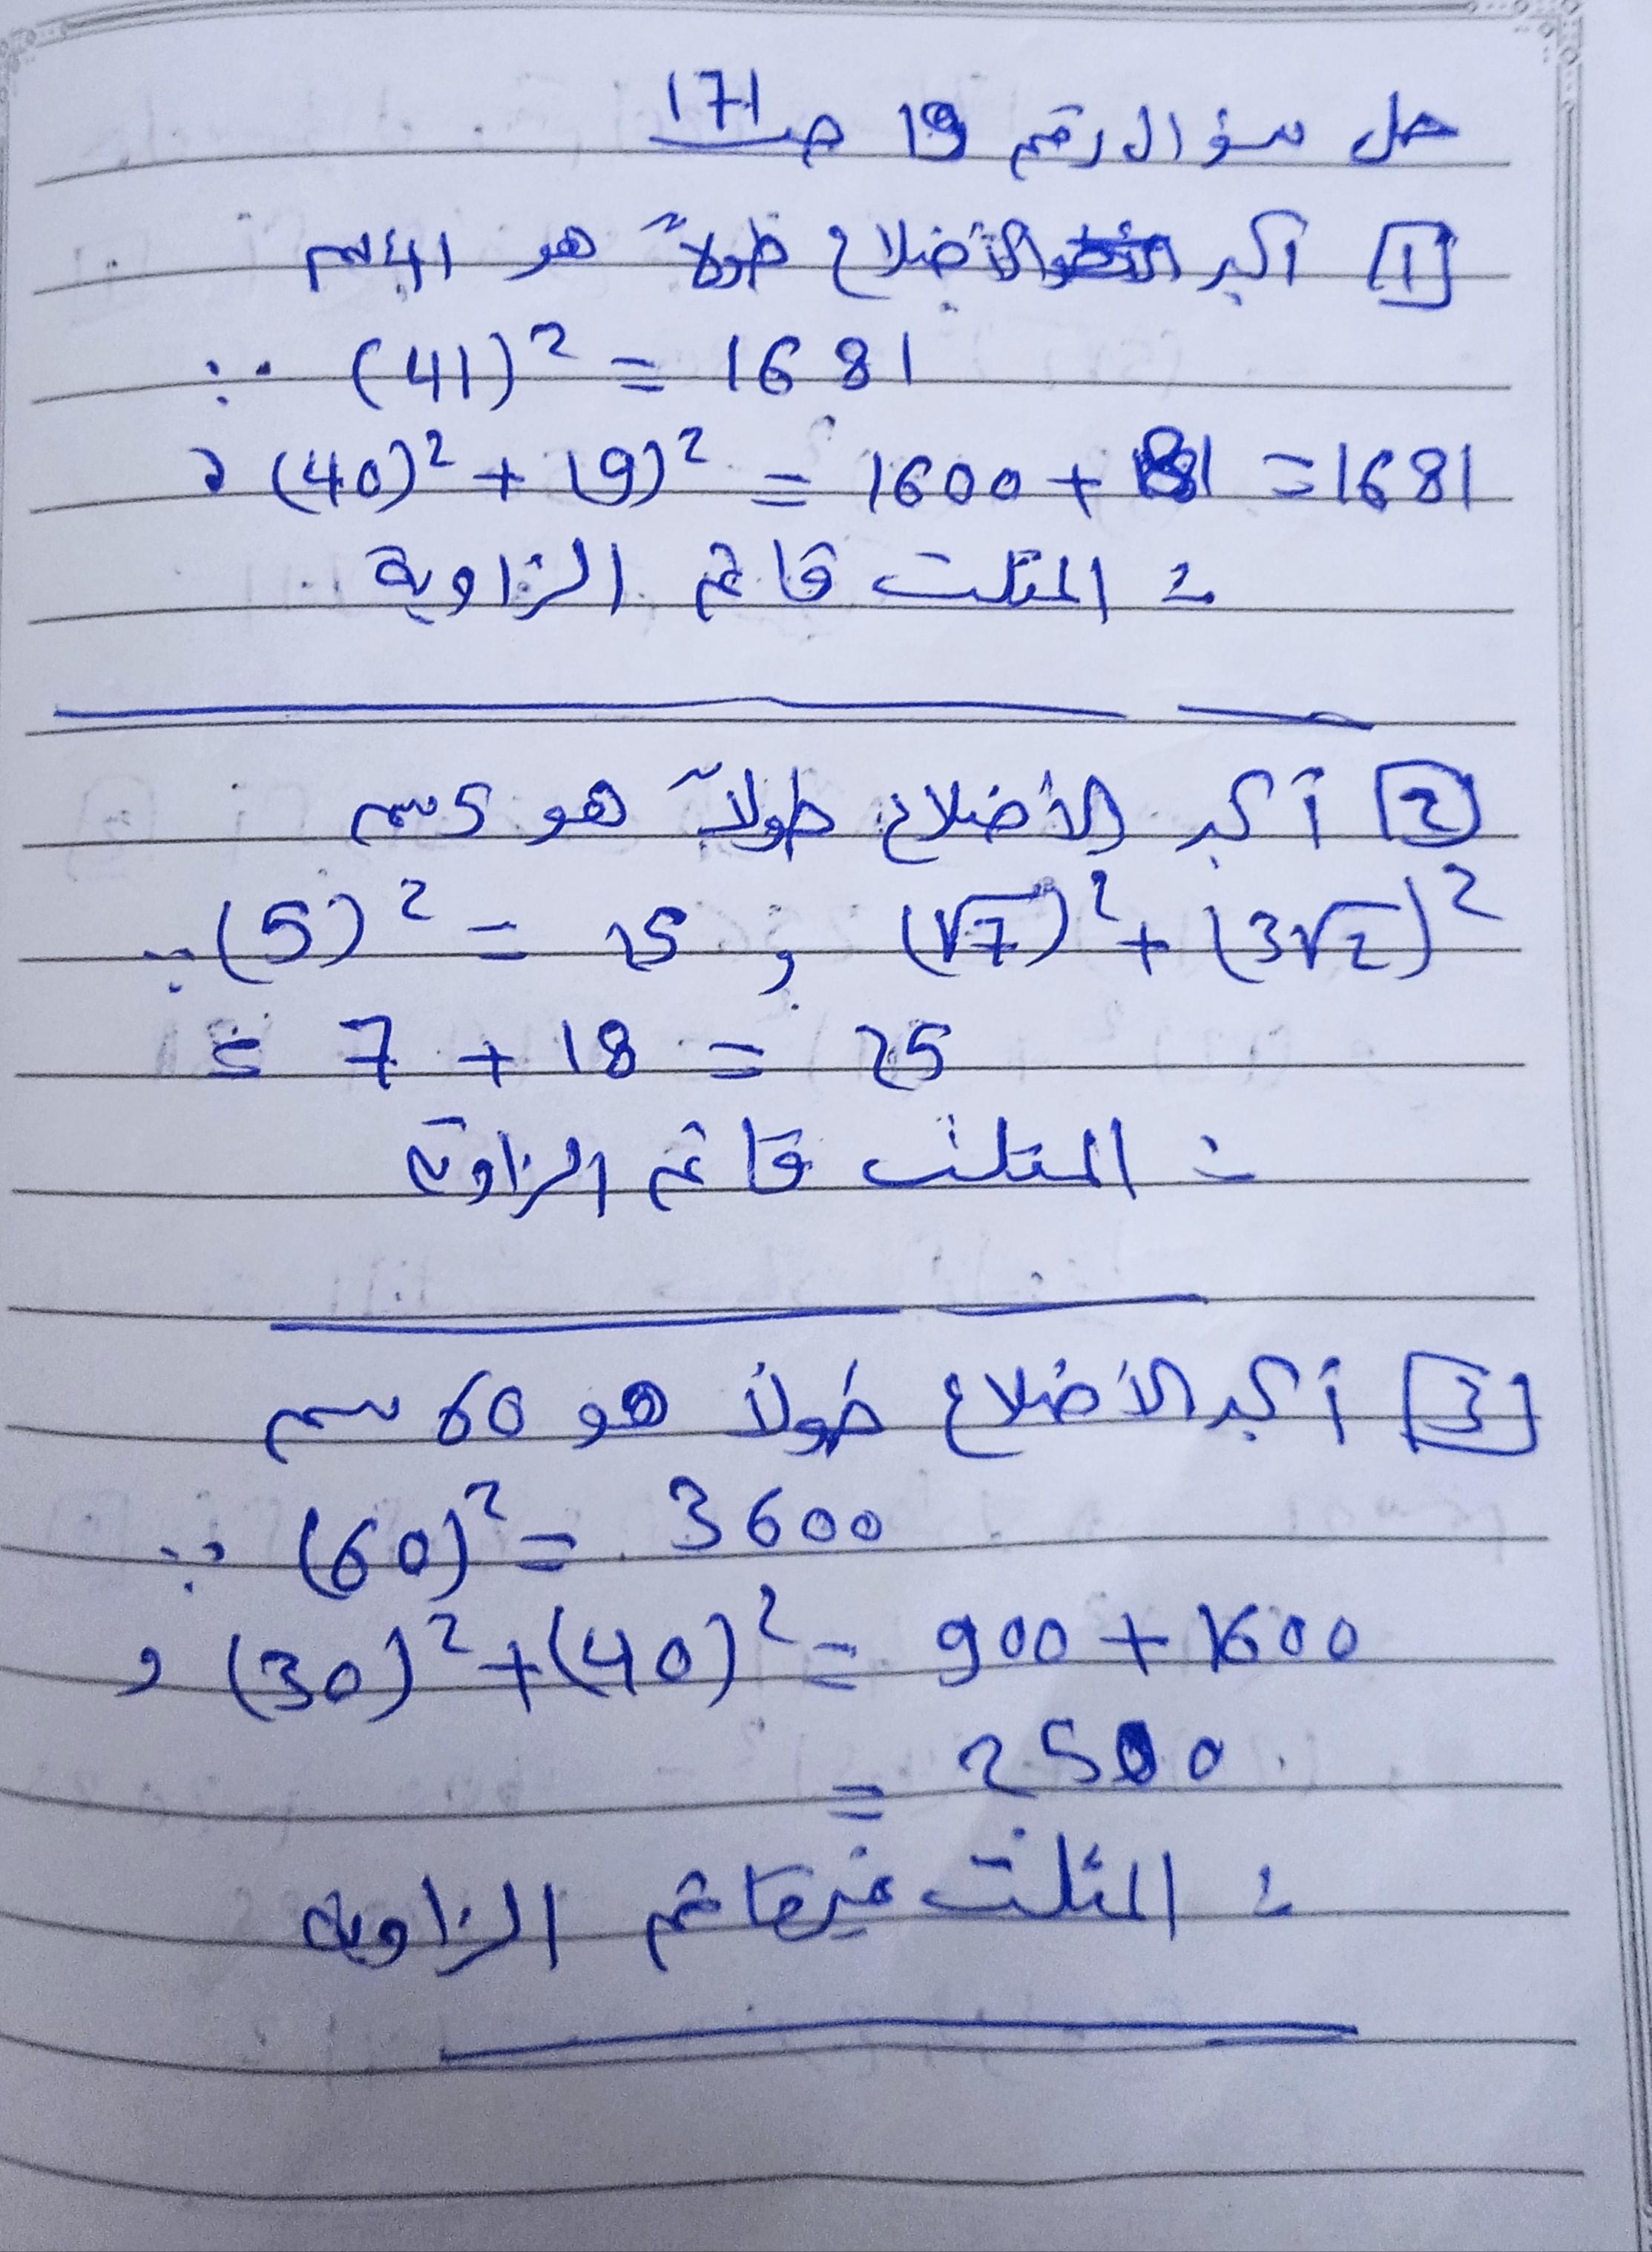 حل سؤال رقم 19 صـ 171
1 أكبر الأضلاع طولاً هو 41 سم
∵ (41)² = 1681
، (40)² + (9)² = 1600 + 81 = 1681
∴ المثلث قائم الزاوية
2 أكبر الأضلاع طولاً هو 5 سم
∵ (5)² = 25 , (√7)² + (3√2)²
= 7 + 18 = 25
∴ المثلث قائم الزاوية
3 أكبر الأضلاع طولاً هو 60 سم
∵ (60)² = 3600
، (30)² + (40)² = 900 + 1600
= 2500
∴ المثلث غير قائم الزاوية